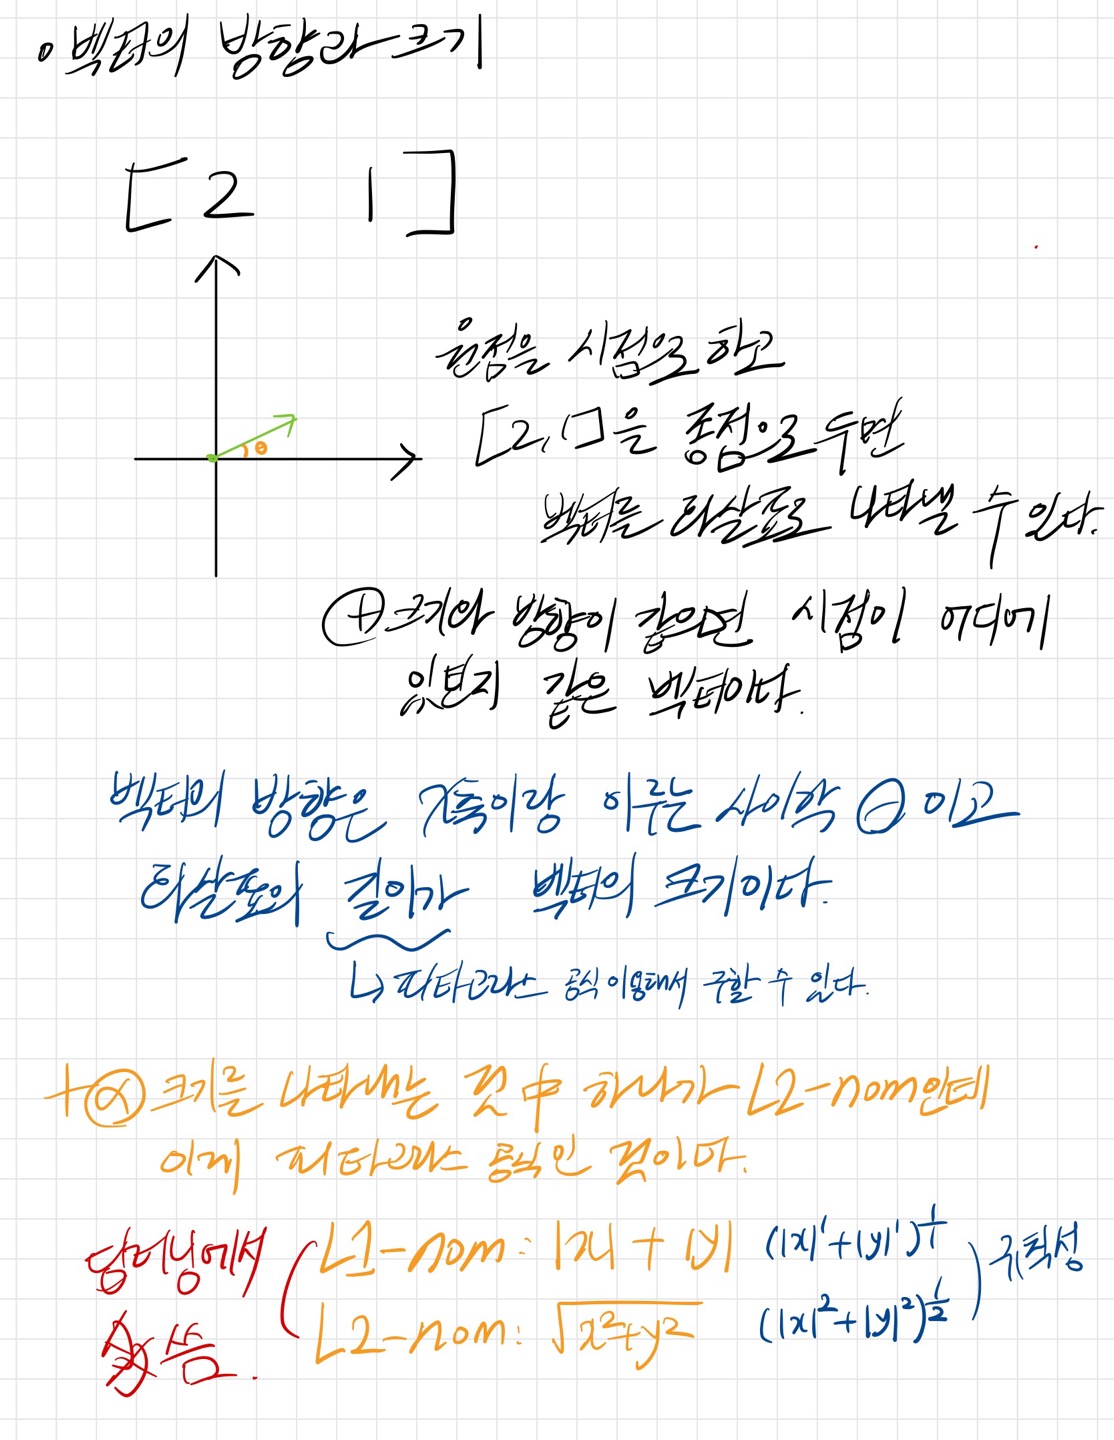 벡터의 방향과 크기
[2 1]
θ
원점을 시점으로 하고
[2, 1]을 종점으로 두면
벡터를 화살표로 나타낼 수 있다.
⊕ 크기와 방향이 같으면 시점이 어디에
있던지 같은 벡터이다.
벡터의 방향은 x축이랑 이루는 사이각 θ이고
화살표의 길이가 벡터의 크기이다.
↳ 피타고라스 공식 이용해서 구할 수 있다.
+α 크기를 나타내는 것 中 하나가 L2-nom인데
이게 피타고라스 공식인 것이다.
딥러닝에서
쓰임.
L1-nom: |x| + |y| (|x|¹+|y|¹)^(1/1)
L2-nom: √(x²+y²) (|x|²+|y|²)^(1/2)
규칙성